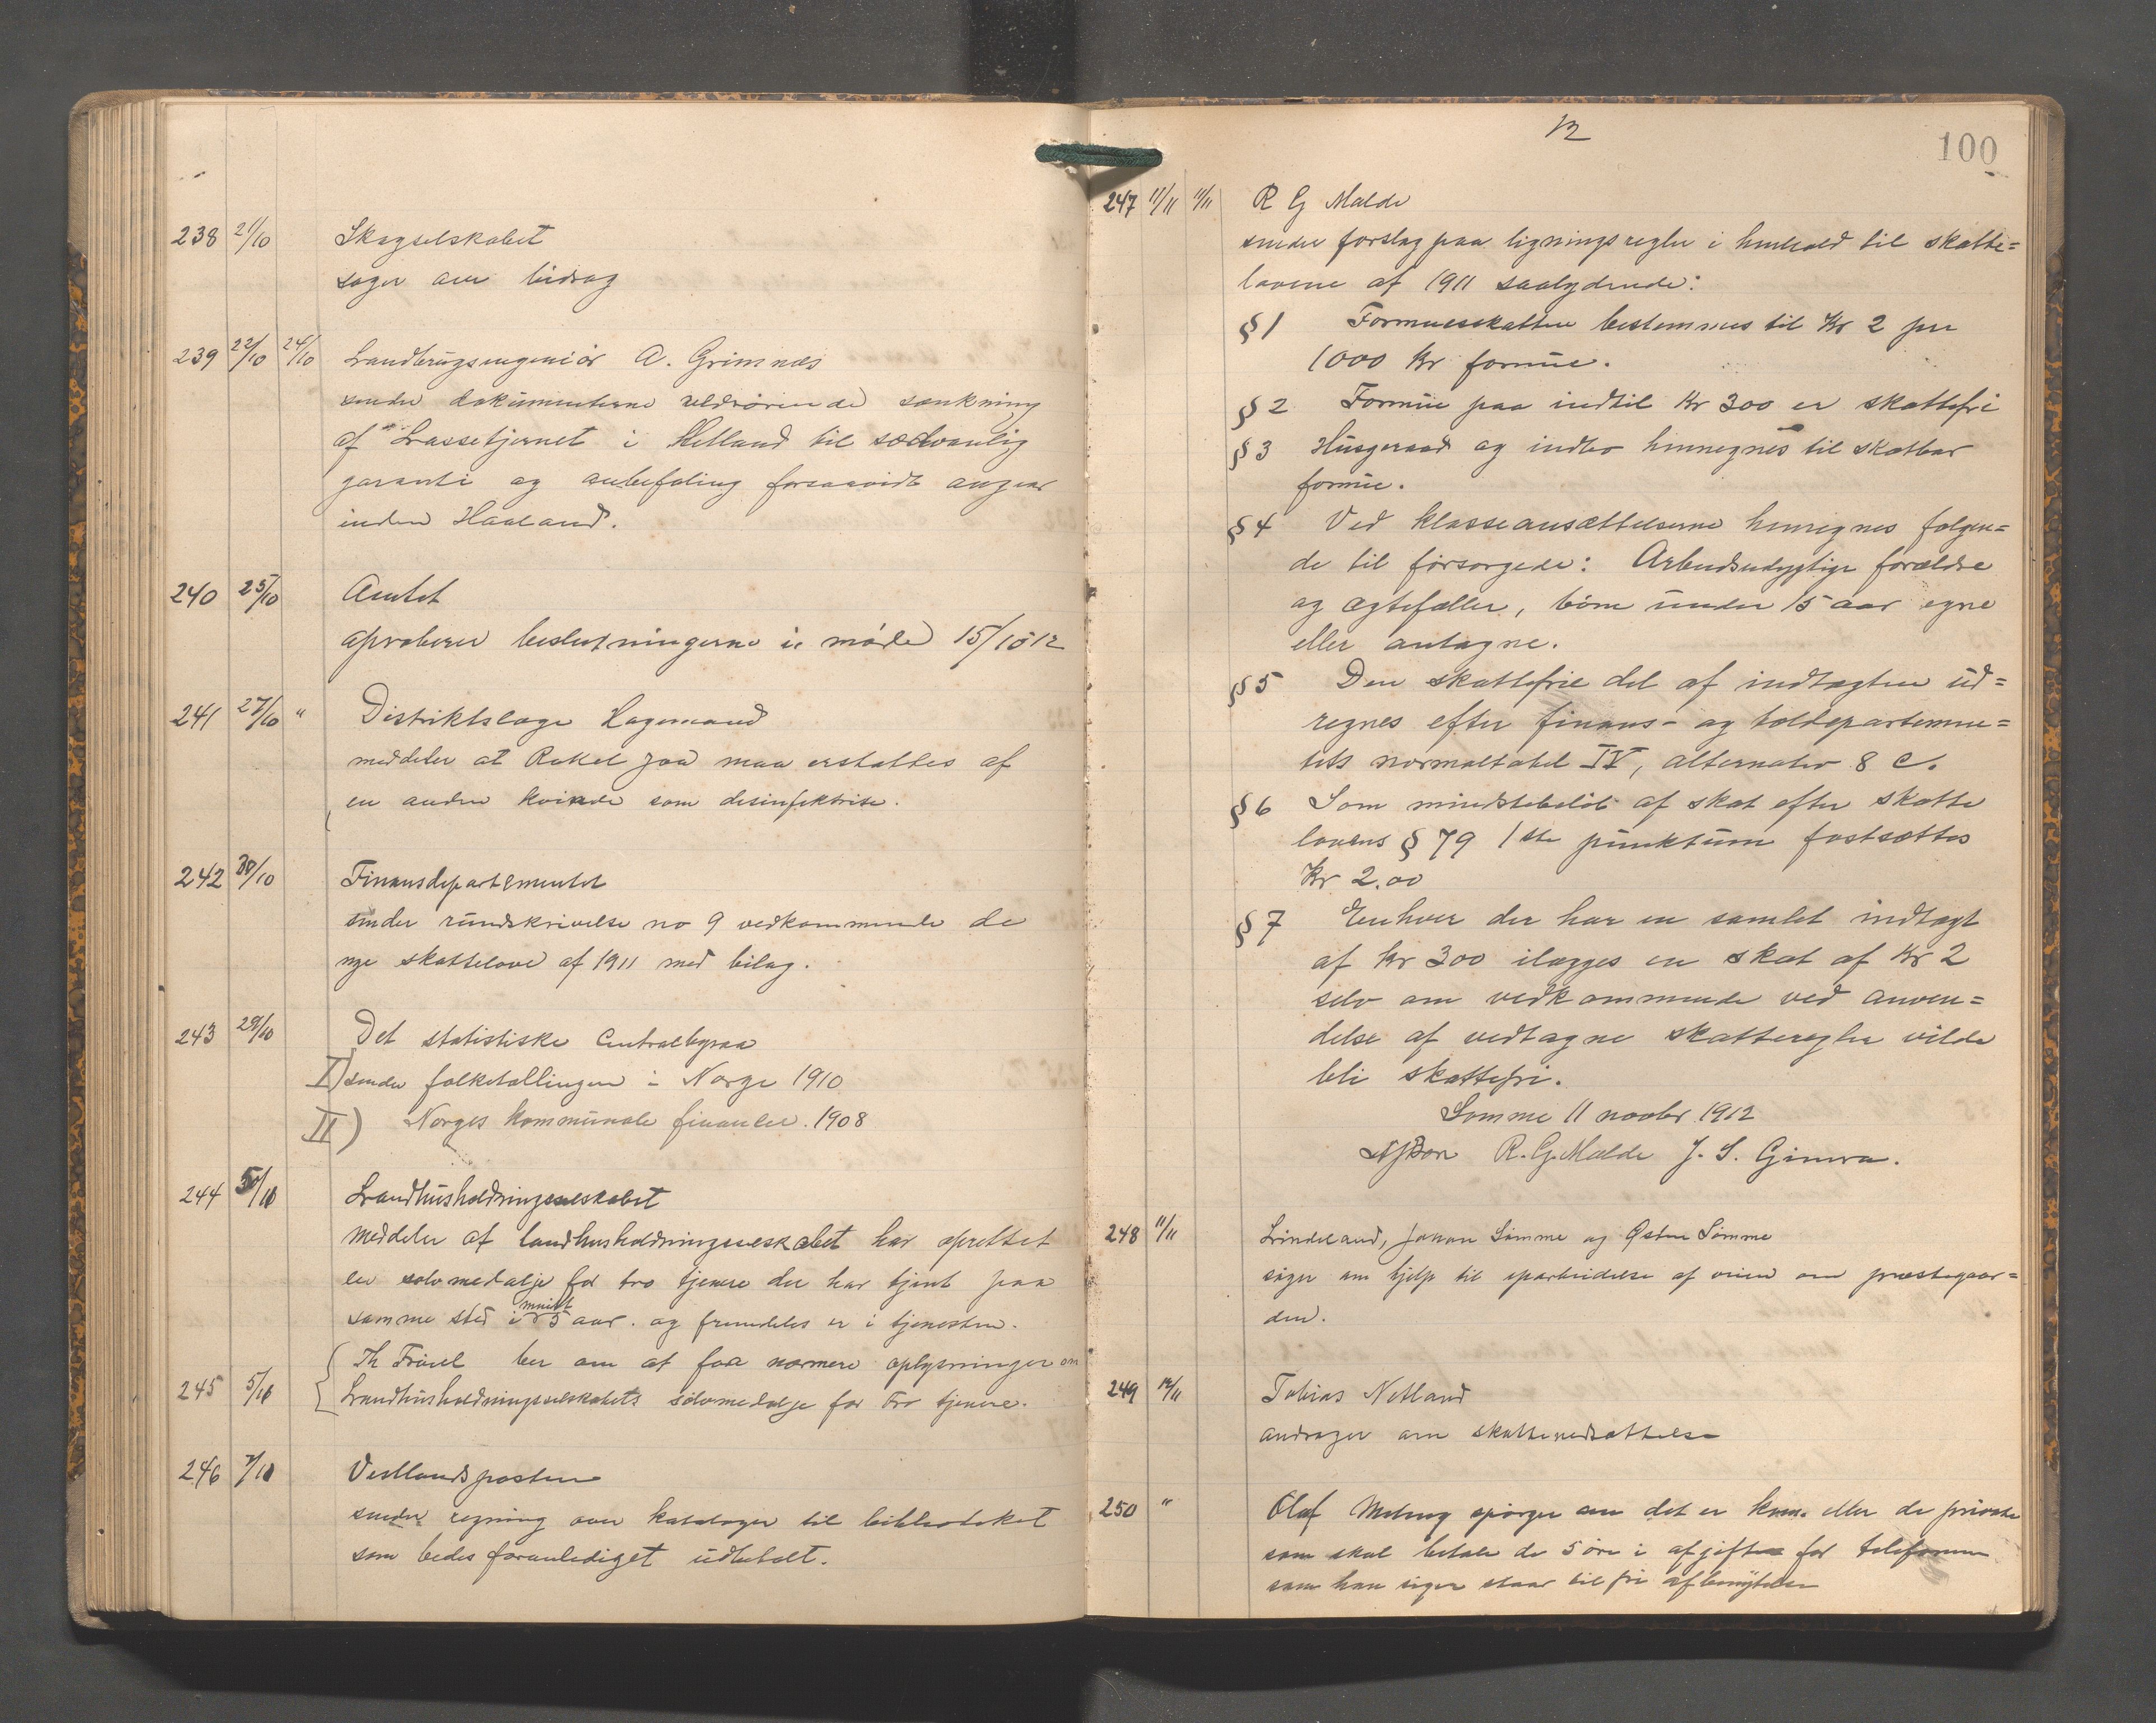 238 21/10 Skogselskabet
søger om bidrag
239 22/10 24/10 Landbrugsingeniör A. Grimnæs
sender dokumenterne vedrörende sænkning
af Lassetjernet i Hetland til sædvanlig
garanti og anbefaling forsaavidt angaar
inden Haaland.
240 25/10 Amtet
aproberer beslutningerne i møde 15/10 12
241 27/10 " Distriktslæge Hagemand
meddeler at Rakel Joa maa erstattes af
en anden kvinde som desinfektrise.
242 30/10 Finansdepartementet
sender rundskrivelse no 9 vedkommende de
nye skattelove af 1911 med bilag.
243 29/10 Det statistiske Centralbyraa
I) sender folketællingen i Norge 1910
II) Norges kommunale finanser. 1908
244 30/10 Landhusholdningsselskabet
meddeler at landhusholdningsselskabet har oprettet
en sølvmedalje for tro tjenere der har tjent paa
samme sted i mindst 5 aar. og fremdeles er i tjenesten.
Th ber om at faa nærmere oplysninger om
245 5/11 Landhusholdningsselskabets sölvmedalje for tro tjenere.
246 7/11 Vestlandsposten
sender regning over kataloger til biblioteket
som bedes foranlediget udbetalt.
12
100
247 11/11 11/11 R G Malde
sender forslag paa ligningsregler i henhold til skatte=
lovene af 1911 saalydende:
§ 1 Formuesskatten bestemmes til Kr 2 per
1000 Kr formue.
§ 2 Formue paa indtil Kr 300 er skattefri
§ 3 Husgeraad og indbo henregnes til skatbar
formue.
§ 4 Ved klasseansættelserne henregnes følgen=
de til forsørgede: Arbeidsudygtige forældre
og ægtefæller, börn under 15 aar egne
eller antagne.
§ 5 Den skattefrie del af indtægten ud=
regnes efter finans- og tolddepartemen=
tets normaltabel IV, alternativ 8 C.
§ 6 Som mindstebelöb af skat efter skatte
lovens § 79 1ste punktum fastsættes
Kr 2.00
§ 7 Enhver der har en samlet indtægt
af Kr 300 ilægges en skat af Kr 2
selv om vedkommende ved anven=
delse af vedtagne skatteregler vilde
bli skattefri.
Sømme 11 novbr 1912
R. G. Malde J. S. Gimra.
248 11/11 Lindeland, Johan Sömme og Østen Sömme
söger om hjelp til oparbeidelse af veien om præstegaar=
den.
249 12/11 Tobias Netland
andrager om skattenedsættelse
250 " Olaf Meling spörger om det er kom. eller de private
som skal betale de 5 öre i afgift for telefonen
som han siger staar til fri afbenyttelse